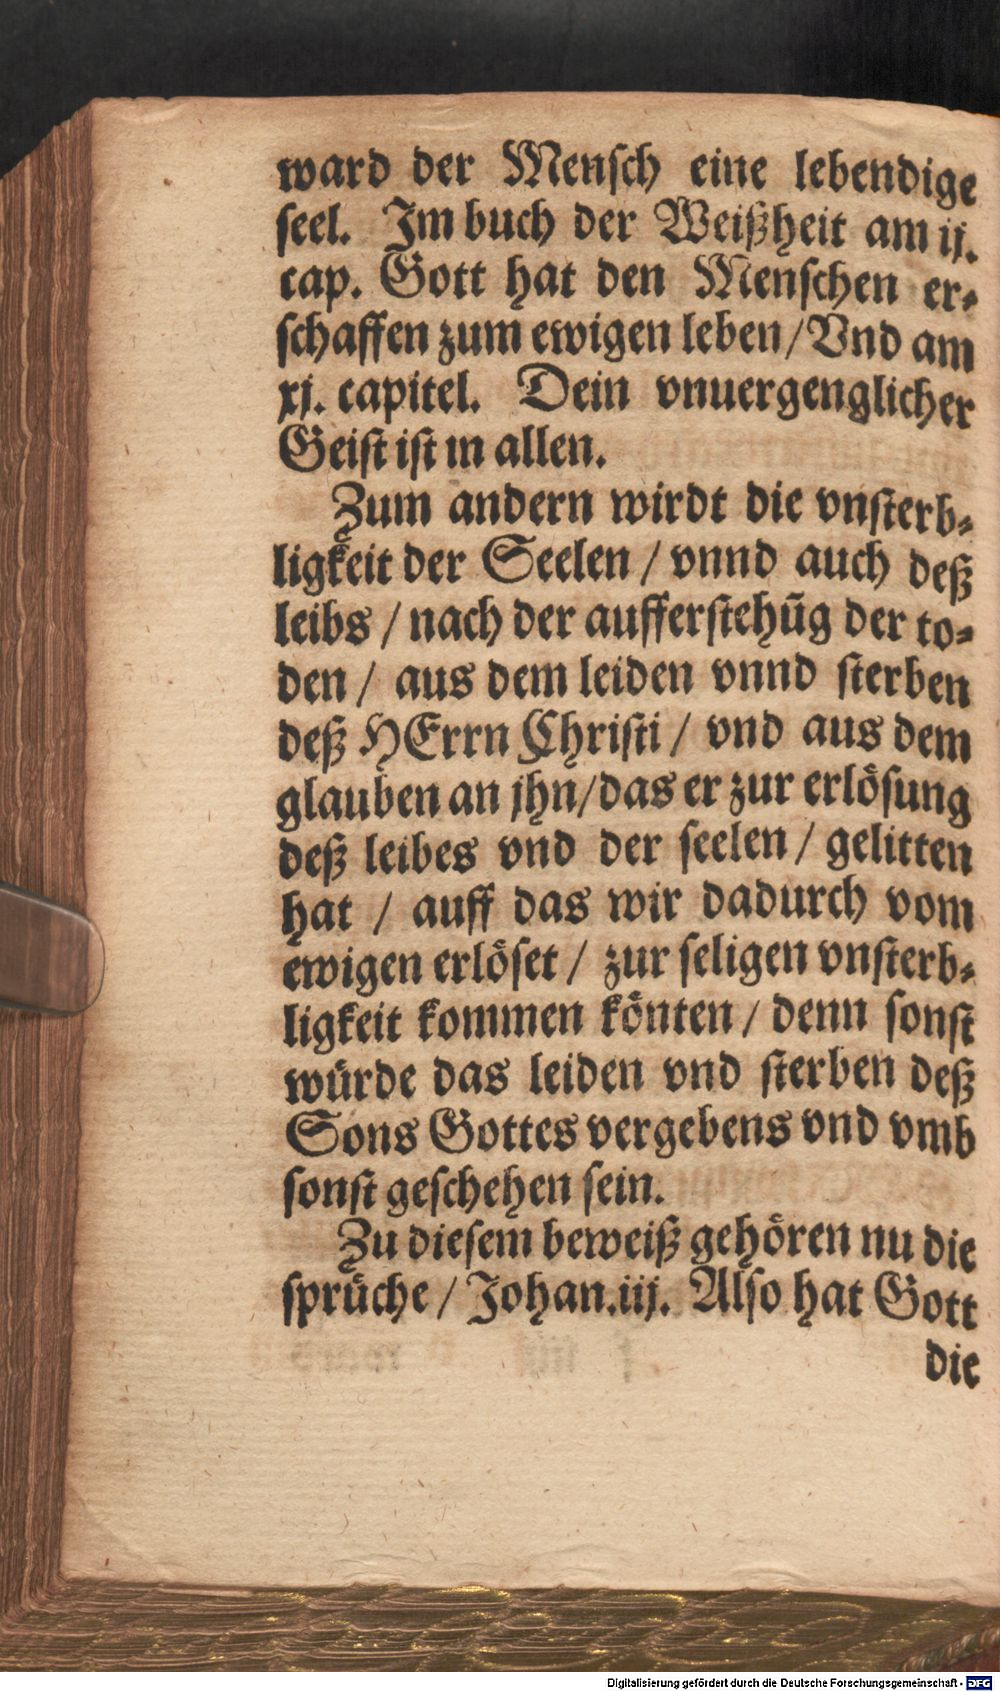 ward der Mensch eine lebendige
seel. Im buch der Weißheit am ij.
cap. Gott hat den Menschen er⸗
schaffen zum ewigen leben / Vnd am
xj. capitel. Dein vnuergenglicher
Geist ist in allen.
Zum andern wirdt die vnsterb⸗
ligkeit der Seelen / vnnd auch deß
leibs / nach der aufferstehūg der to⸗
den / aus dem leiden vnnd sterben
deß HErrn Christi / vnd aus dem
glauben an jhn / das er zur erlösung
deß leibes vnd der seelen / gelitten
hat / auff das wir dadurch vom
ewigen erlöset / zur seligen vnsterb⸗
ligkeit kommen könten / denn sonst
würde das leiden vnd sterben deß
Sons Gottes vergebens vnd vmb
sonst geschehen sein.
Zu diesem beweiß gehören nu die
sprüche / Johan. iij. Also hat Gott
die
Digitalisierung gefördert durch die Deutsche Forschungsgemeinschaft - DFG